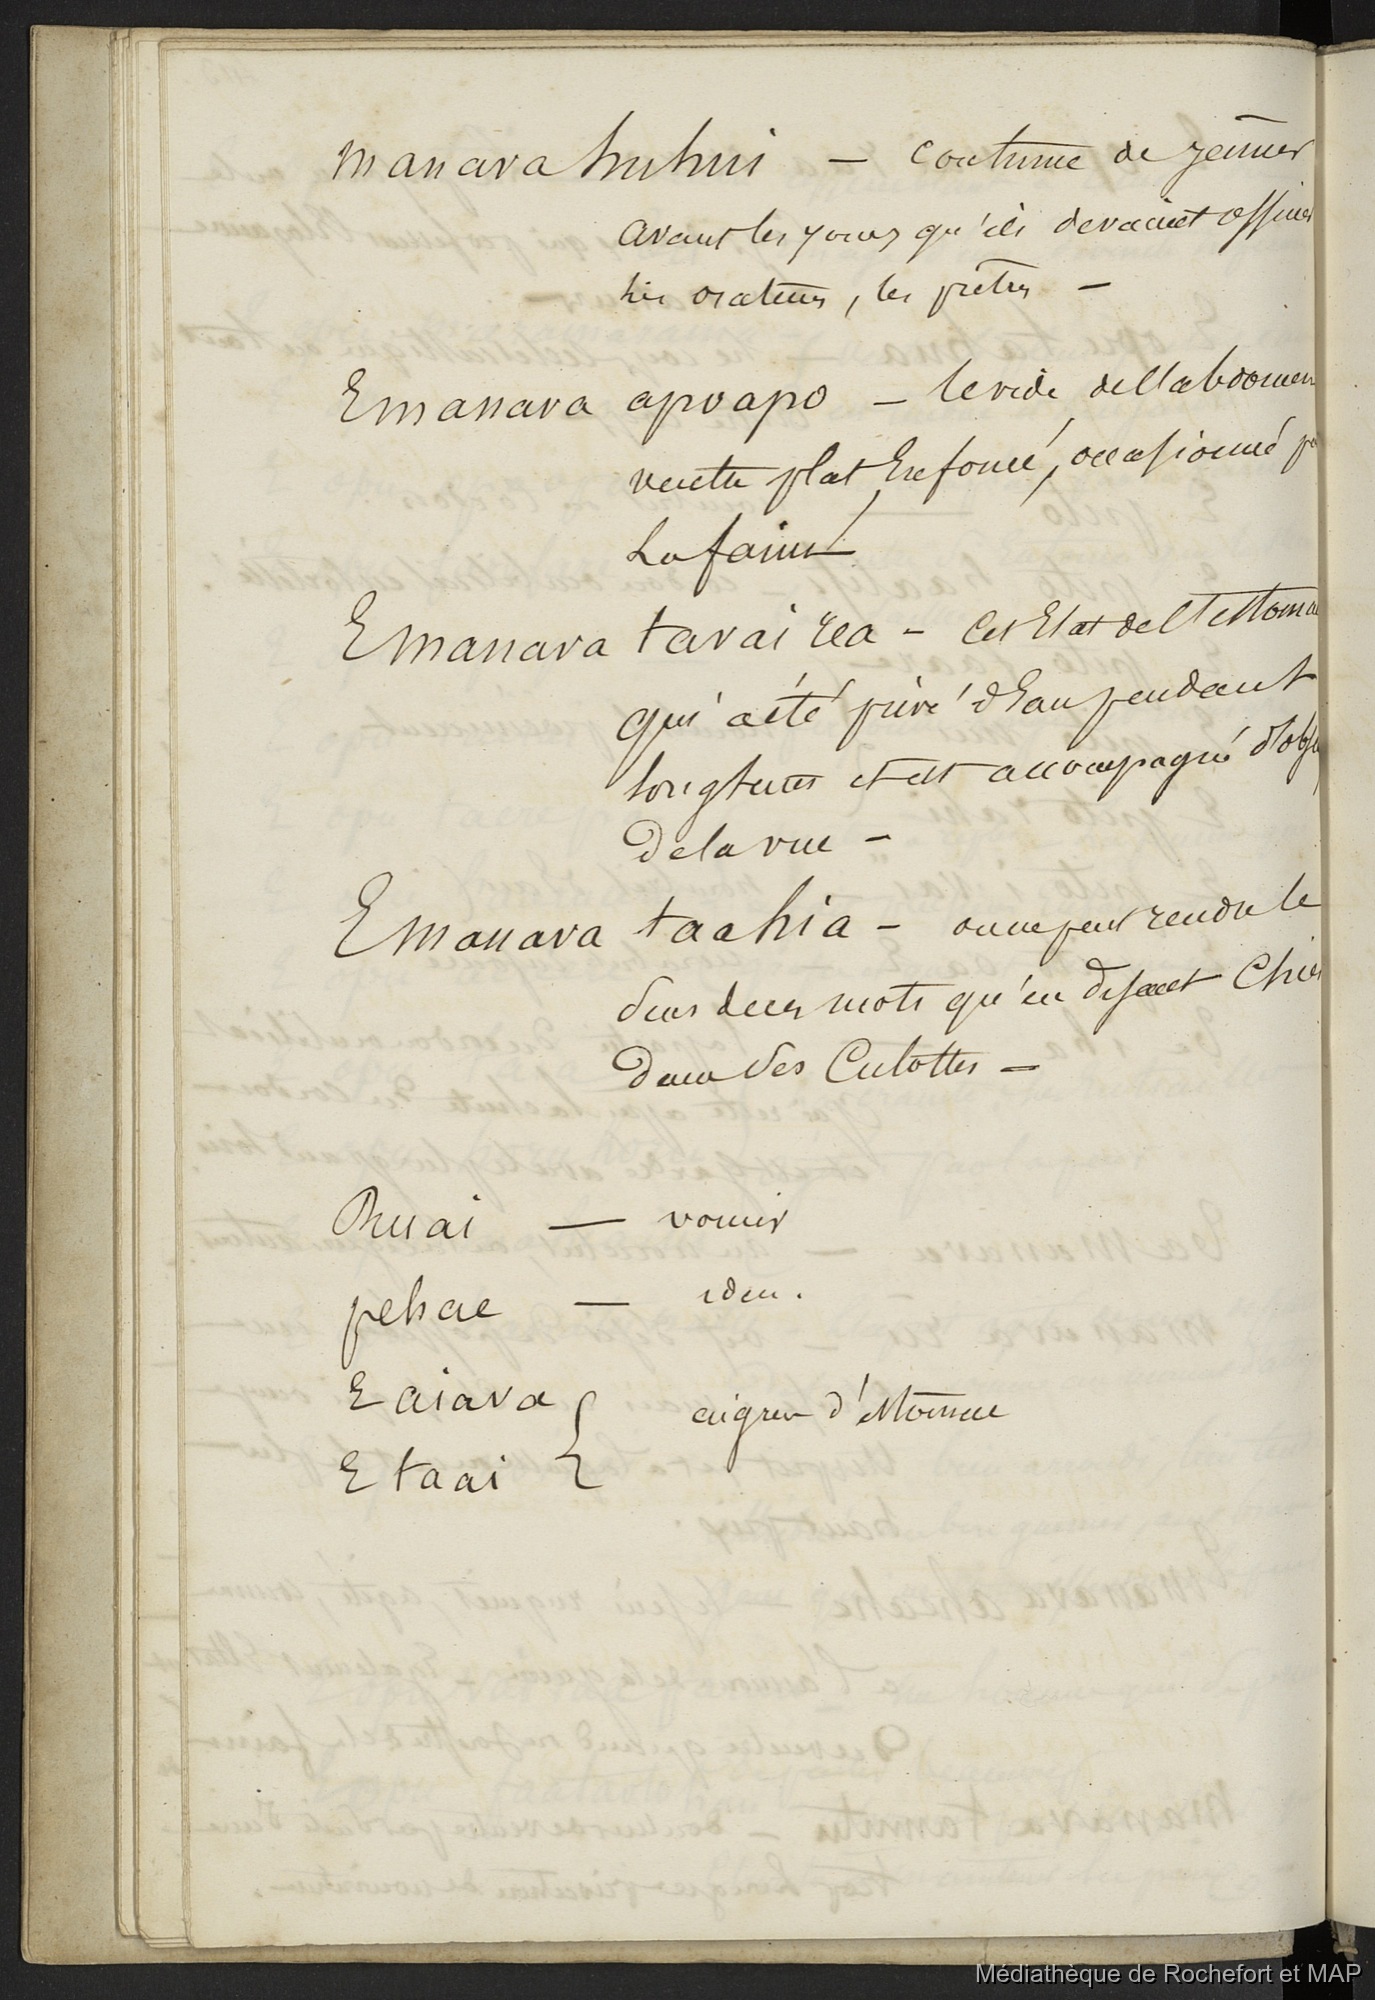 Manava huhui — Coutume de jeûner
avant les jours qu'ils devaient officier
les orateurs, les prêtres —
E manava apoapo — le vide de l'abdomen
ventre plat Enfoncé, occasionné par
La faim
E manava tavai rea — Cet Etat de l'estomac
qui a été privé d'Eau pendant
longtems et est accompagné
de la vue —
E manava taahia — on ne peut rendre le
sens de ces mots qu'en disant Chier
dans ses Culottes —
Ruai — vomir
pehae — idem.
E aiava
E taai { aigreur d'estomac
Médiathèque de Rochefort et MAP